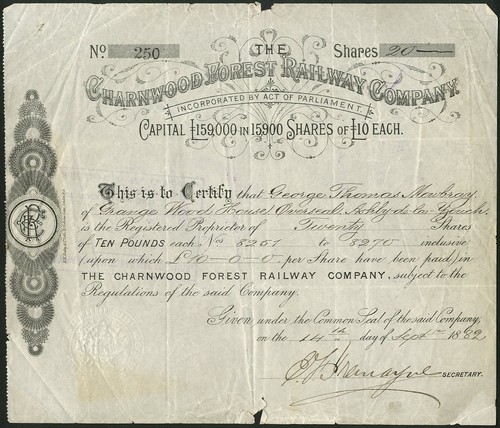 No. 250 THE Shares 20
CHARNWOOD FOREST RAILWAY COMPANY.
INCORPORATED BY ACT OF PARLIAMENT.
CAPITAL £159,000 IN 15900 SHARES OF £10 EACH.
This is to Certify that George Thomas Mowbray
of Grange Wood House, Overseal, Ashby-de-la-Zouch,
is the Registered Proprietor of Twenty Shares
of TEN POUNDS each Nos 5251 to 5270 inclusive
(upon which £10-0-0 per Share have been paid) in
THE CHARNWOOD FOREST RAILWAY COMPANY, subject to the
Regulations of the said Company.
Given under the Common Seal of the said Company,
on the 14th day of Septr 1882
SECRETARY.